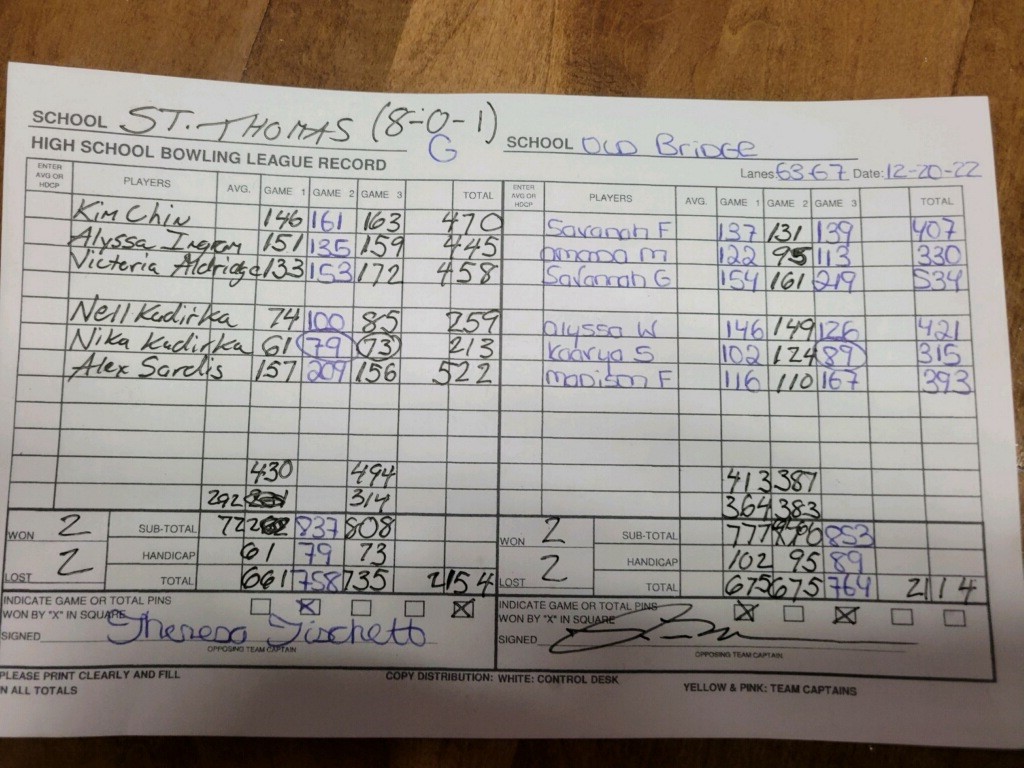 SCHOOL ST. THOMAS (8-0-1)
G
SCHOOL OLD BRIDGE
HIGH SCHOOL BOWLING LEAGUE RECORD
Lanes: 63-67 Date: 12-20-22
ENTER AVG OR HDCP PLAYERS AVG. GAME 1 GAME 2 GAME 3 TOTAL
Kim Chin 146 161 163 470
Alyssa Ingram 151 135 159 445
Victoria Aldridge 133 153 172 458
Nell Kudirka 74 100 85 259
Nika Kudirka 61 79 73 213
Alex Sardis 157 209 156 522
430 494
292 314
WON 2 SUB-TOTAL 722 837 808
HANDICAP 61 79 73
LOST 2 TOTAL 661 758 735 2154
INDICATE GAME OR TOTAL PINS
WON BY "X" IN SQUARE X X
SIGNED Theresa
OPPOSING TEAM CAPTAIN
ENTER AVG OR HDCP PLAYERS AVG. GAME 1 GAME 2 GAME 3 TOTAL
Savanah F 137 131 139 407
Amana M 122 95 113 330
Savannah G 154 161 219 534
Alyssa W 146 149 126 421
Kaarya S 102 124 89 315
Madison F 116 110 167 393
413 387
364 383
WON 2 SUB-TOTAL 777 853
HANDICAP 102 95 89
LOST 2 TOTAL 675 675 764 2114
INDICATE GAME OR TOTAL PINS
WON BY "X" IN SQUARE X X
SIGNED
OPPOSING TEAM CAPTAIN
PLEASE PRINT CLEARLY AND FILL
N ALL TOTALS
COPY DISTRIBUTION: WHITE: CONTROL DESK
YELLOW & PINK: TEAM CAPTAINS